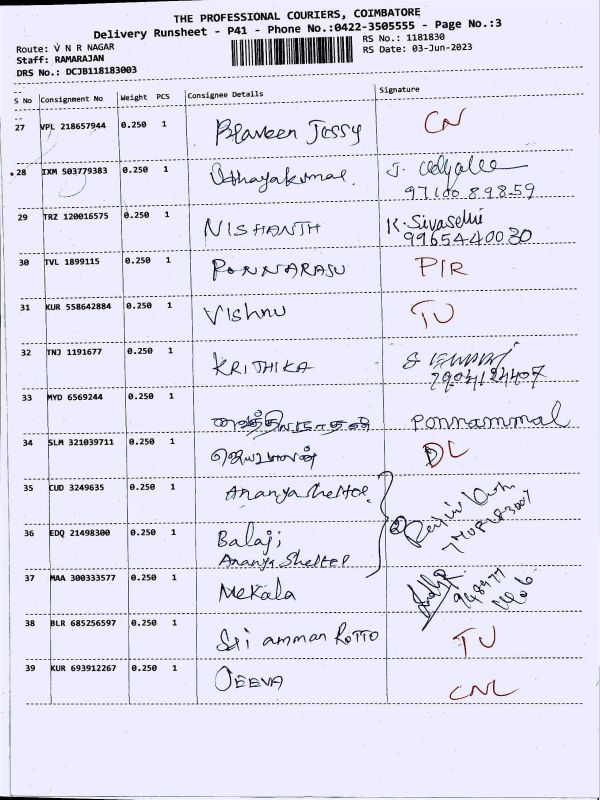 THE PROFESSIONAL COURIERS, COIMBATORE
Delivery Runsheet - P41 - Phone No.:0422-3505555 - Page No.:3
Route: V N R NAGAR
RS No.: 1181830
Staff: RAMARAJAN
RS Date: 03-Jun-2023
DRS No.: DCJB118183003
S No Consignment No Weight PCS Consignee Details Signature
27 VPL 218657944 0.250 1 Praveen Jossy CN
28 IXM 503779383 0.250 1 Uthayakumar. J.
9710089859
29 TRZ 120016575 0.250 1 NISHANTH K. Sivaselvi
9965440030
30 TVL 1899115 0.250 1 PONNARASU PIR
31 KUR 558642884 0.250 1 Vishnu TU
32 TNJ 1191677 0.250 1 KRITHIKA
7904124407
33 MYD 6569244 0.250 1 Ponnammal
34 SLM 321039711 0.250 1 DL
35 CUD 3249635 0.250 1 Ananya Shelter
36 EDQ 21498300 0.250 1 Balaji
Ananya Shelter
37 MAA 300333577 0.250 1 Mekala
38 BLR 685256597 0.250 1 Sri amman ROTTO TU
39 KUR 693912267 0.250 1 JEEVA CNL